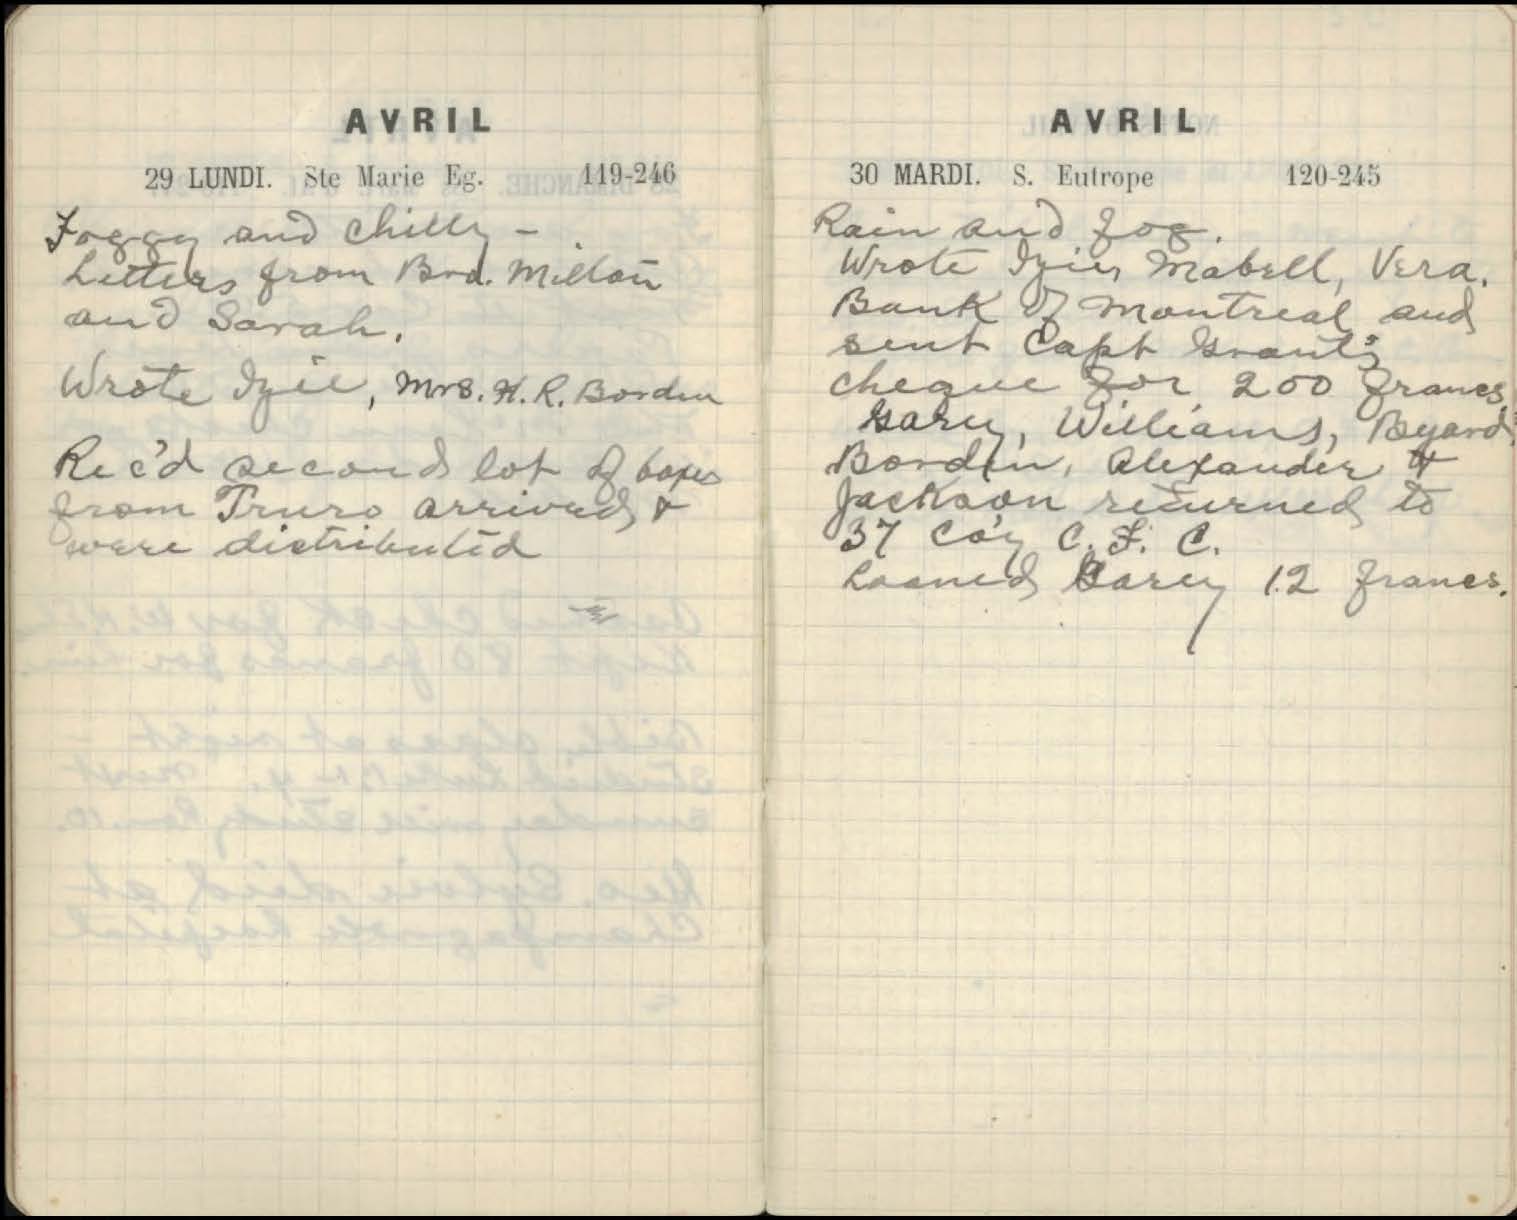 AVRIL
29 LUNDI. Ste Marie Eg. 119-246
Foggy and chilly -
Letters from Bro. Milton
and Sarah.
Wrote Izie, Mrs. H. R. Borden
Rec'd second lot of boxes
from Truro arrived, &
were distributed
AVRIL
30 MARDI. S. Eutrope 120-245
Rain and fog.
Wrote Izie, Mabell, Vera,
Bank of Montreal and
sent Capt Grant's
cheque for 200 francs.
Gary, Williams, Byard,
Borden, Alexander &
Jackson returned to
37 Co'y C. F. C.
Loaned Garey 12 francs.